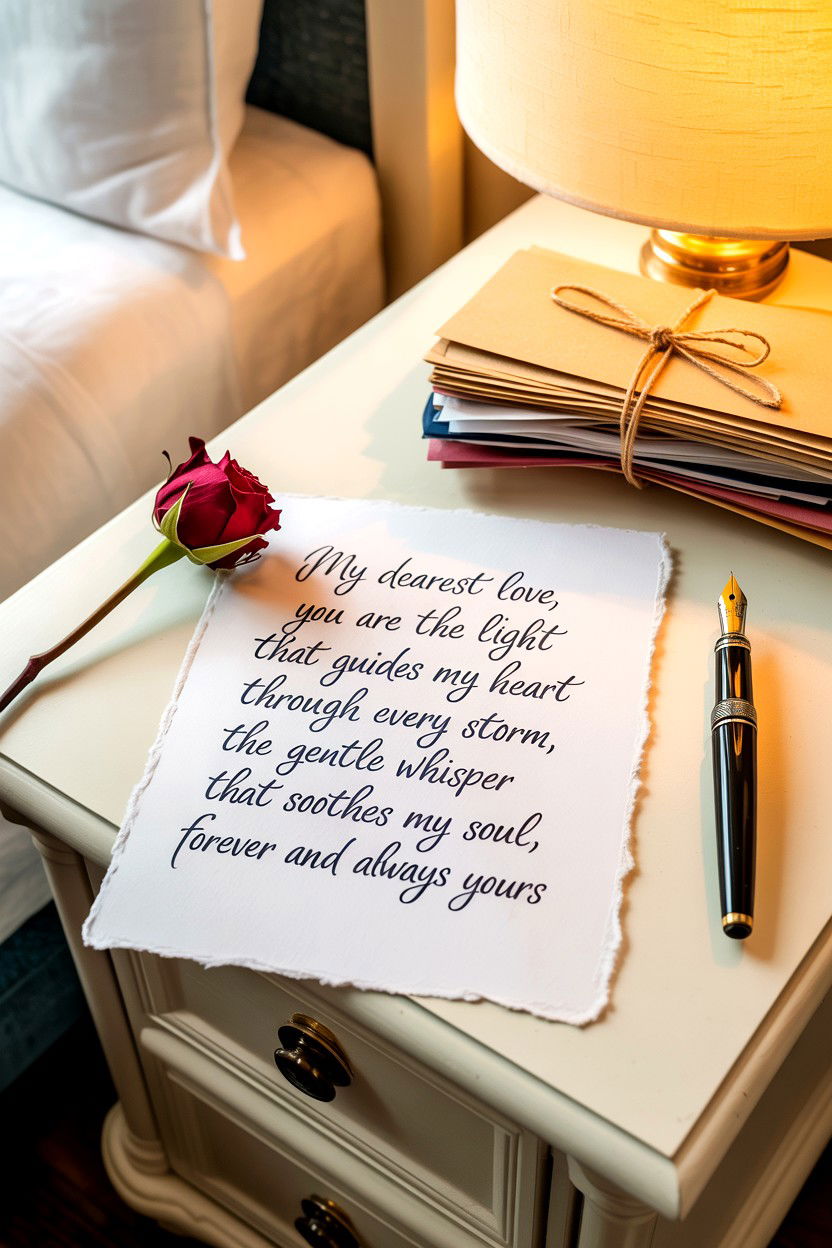 My dearest love,
you are the light
that guides my heart
through every storm,
the gentle whisper
that soothes my soul,
forever and always yours